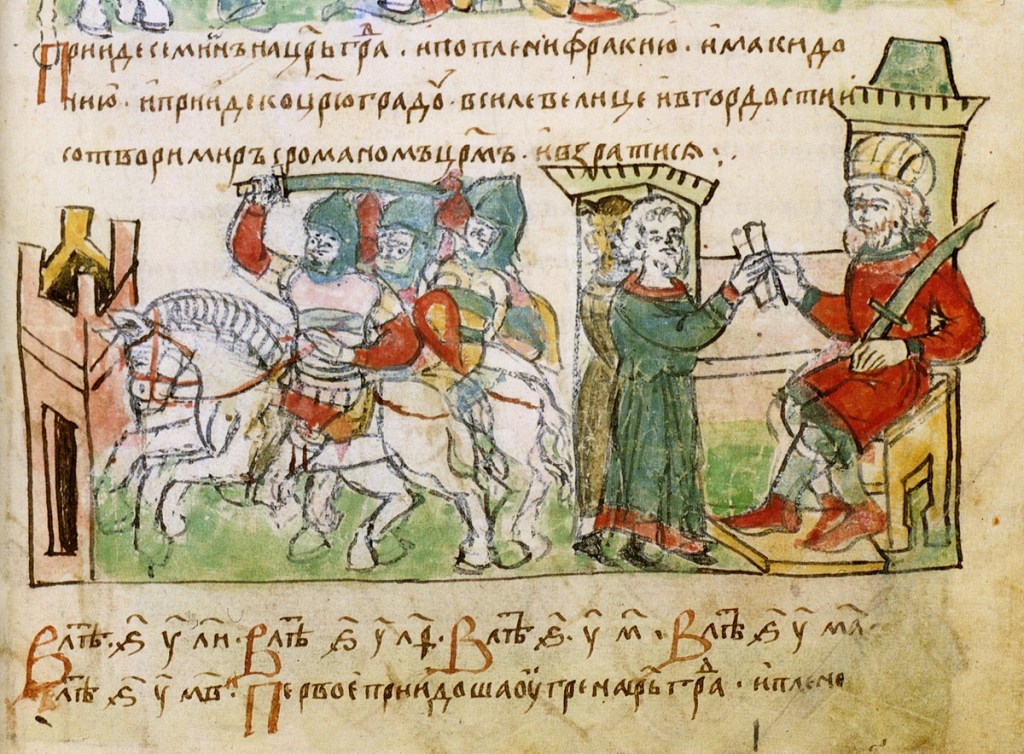 Прииде семиѡнъ на цр҃ьгра҃ . и поплени фракию . и макидо
нию . и прииде ко цр҃юградоу҃ . в силе велице и в гордости и
сотвори миръ с романомъ цр҃мъ . и взратися :.
В лт҃ѣ . ѕ҃ у҃ ли . В лт҃ѣ ѕ҃ у҃ лѳ . В лт҃ѣ . ѕ҃ . у҃ м҃ . В лт҃ѣ ѕ҃ у҃ м҃а .
В лт҃ѣ ѕ҃ у҃ м҃в . Первое приидоша оугре на цр҃ьгра҃ . и плено